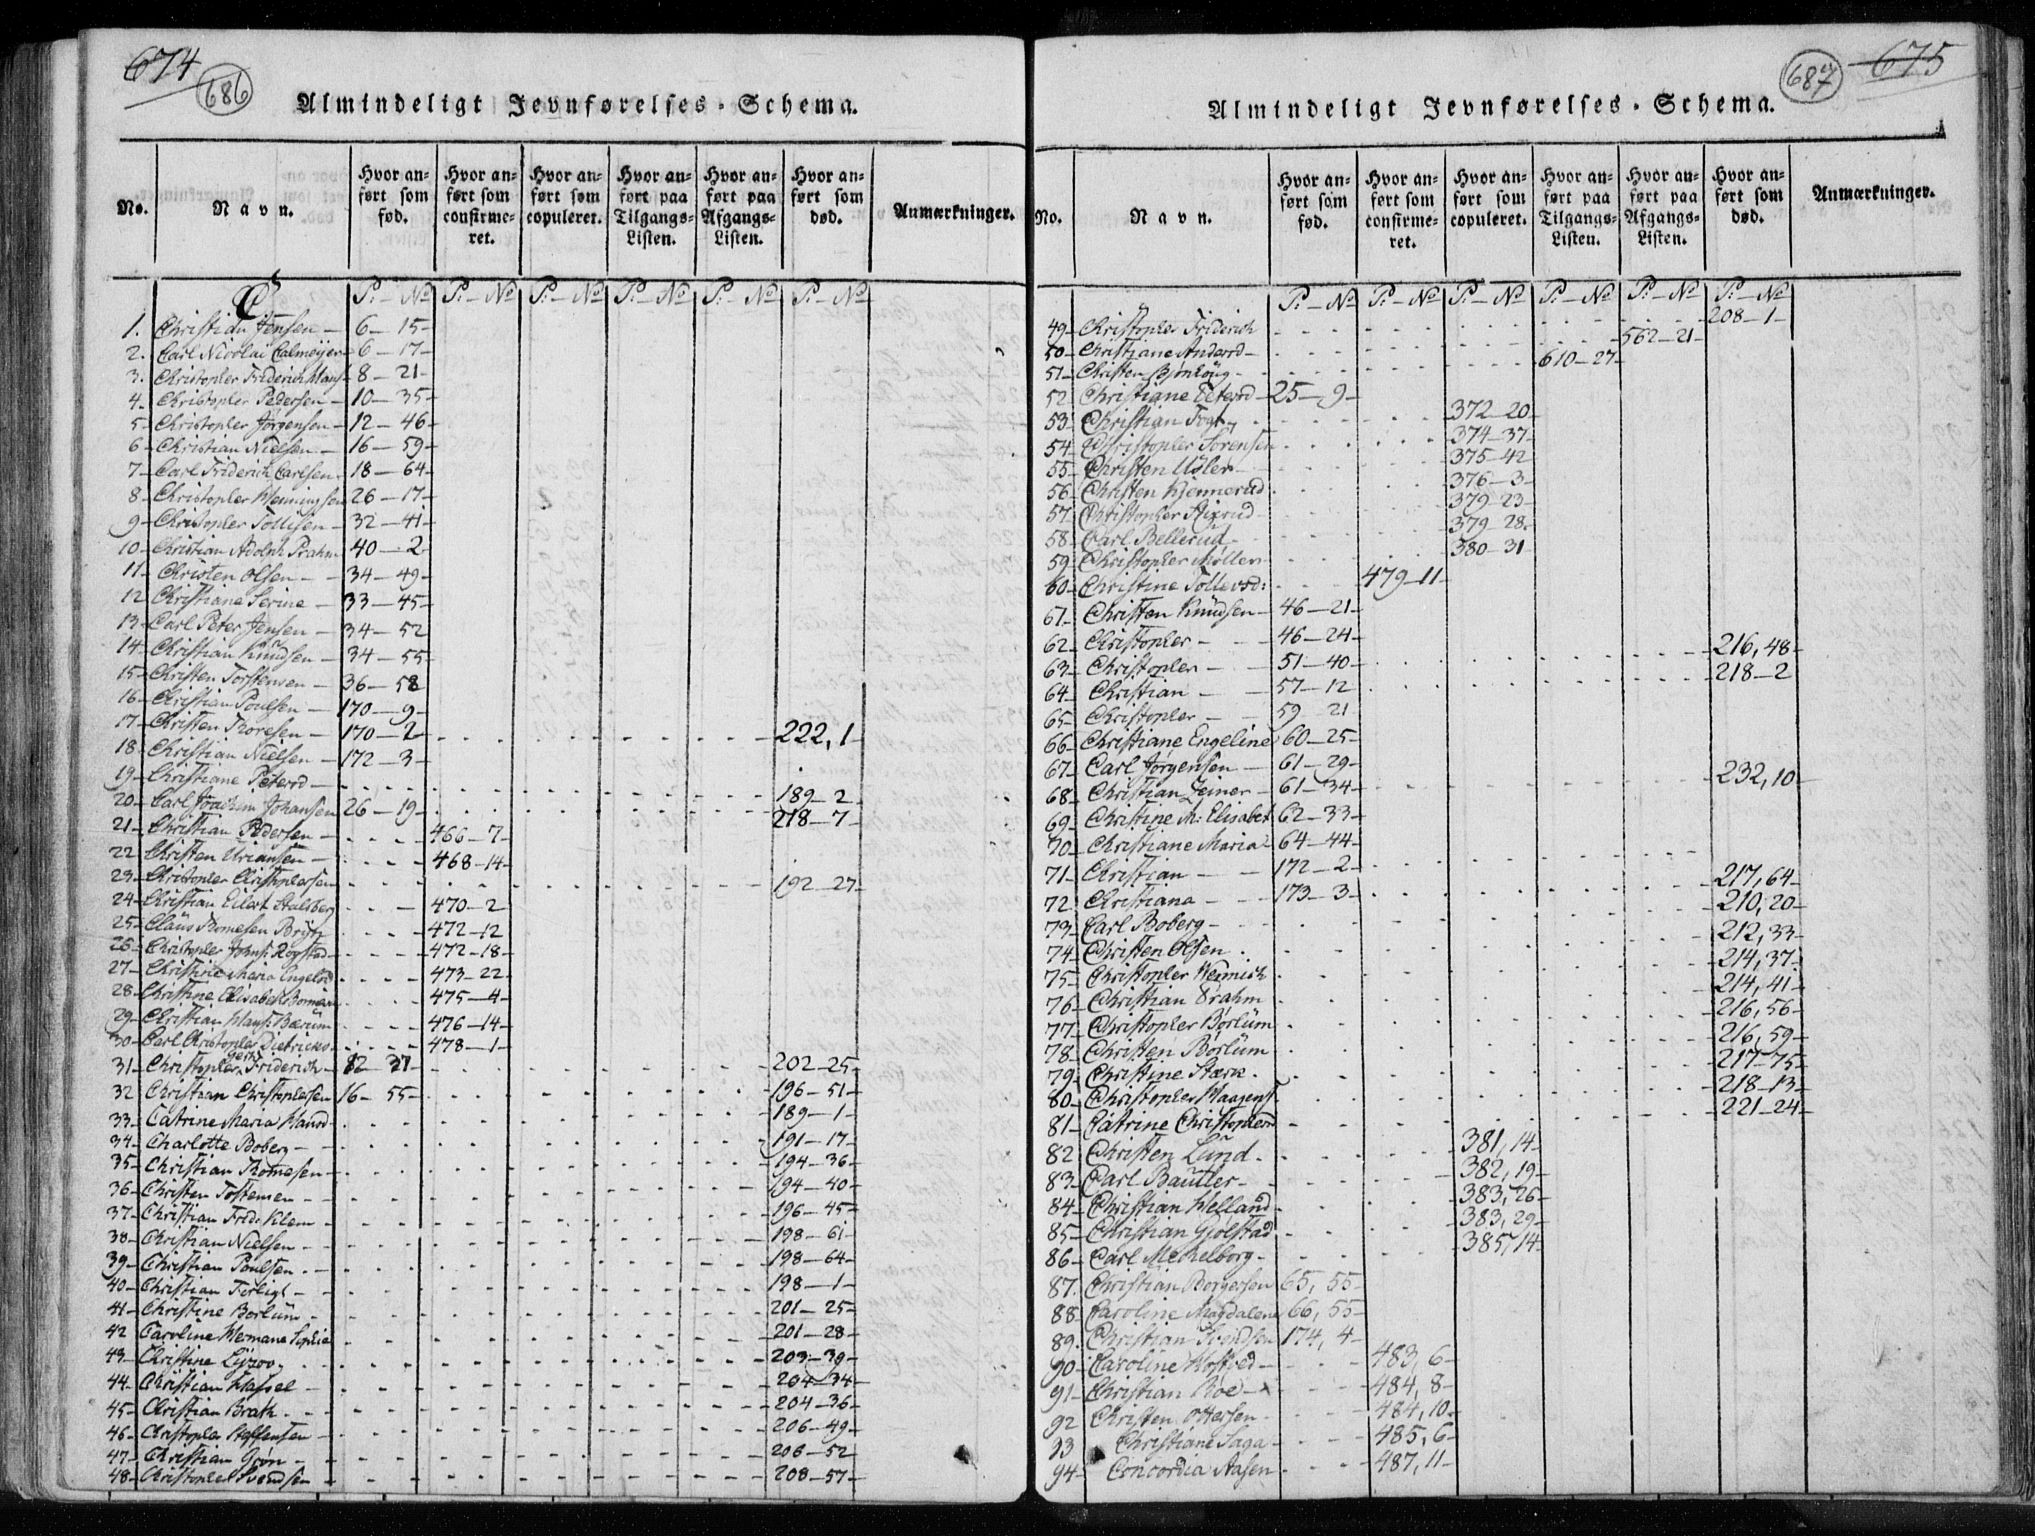 674
686
Almindeligt Jevnførelses-Schema.
No. Navn. Hvor anført som fød. Hvor anført som confirmeret. Hvor anført som copuleret. Hvor anført paa Tilgangs-Listen. Hvor anført paa Afgangs-Listen. Hvor anført som død. Anmærkninger.
C P. – No P. – No P. – No P. – No P. – No P. – No
1. Christian Jensen – 6 – 15 –
2. Carl Nicolai Calmeyer – 6 – 17 –
3. Christopher Friderich Hans – 8 – 21 –
4. Christopher Pedersen – 10 – 35 –
5 – Christopher Jørgensen – 12 – 46 –
6 – Christian Nielsen – 16 – 59 –
7 – Carl Friderich Carlsen – 18 – 64 –
8 – Christopher Henningsen 26 – 17 –
9 – Christopher Tollisen – 32 – 41 –
10 – Christian Adolph Prahm 40 – 2
11 – Christen Olsen – 34 – 49 –
12 Christiane Serine – 33 – 45 –
13 – Carl Peter Jensen – 34 – 52
14 – Christian Knudsen – 34 – 55 –
15 – Christen Torstensen – 36 – 58
16 – Christian Poulsen – 170 – 9 –
17 – Christen Thoresen – 170 – 2 – 222, 1 –
18 – Christian Nielsen – 172 – 3 –
19 – Christiane Petersd – 189 – 2
20 – Carl Joachim Johansen 26 – 19 – 218 – 7 –
21 – Christian Pedersen – 466 – 7 –
22 – Christen Uriansen – 468 – 14 –
23 – Christopher Christophersen 192 – 27 –
24 – Christian Eilert Stalsberg 470 – 2
25 – Claus Thomesen Brytz 472 – 12
26 – Christopher Johns. Rogstad – 472 – 18 –
27 – Christine Maria Engelsd 473 – 22 –
28 – Christine Elisabeth 475 – 4 –
29 – Christian Hans. Bærum 476 – 14 –
30 – Carl Christopher Dietrichs – 478 – 1 –
31 – Christopher Friderich – 82 – 37 202 – 25 –
32 Christian Christophersen 16 – 55 – 196 – 51 –
33 – Catrine Maria Hansd – 189 – 1 –
34 – Charlotte Boberg – 191 – 17 –
35 – Christian Thomesen – 194 – 36 –
36 – Christen Tostensen – 194 – 40 –
37 – Christian Fred. Klem – 196 – 45 –
38 – Christian Nielsen – 198 – 61 –
39 – Christian Poulsen – 198 – 64 –
40 – Christian – 198 – 1 –
41 – Christine Borlum – 201 – 25 –
42 Caroline Hermane Sophie 201 – 28 –
43 – Christine 203 – 39 –
44 – Christian Hassel – 204 – 34 –
45 – Christian Brath – 204 – 36 –
46 – Christopher Steffensen – 206 – 49 –
47 – Christian Grøn – 206 – 52
48 – Christopher Svendsen – 208 – 57 –
687
675
Almindeligt Jevnførelses-Schema.
No. Navn. Hvor anført som fød. Hvor anført som confirmeret. Hvor anført som copuleret. Hvor anført paa Tilgangs-Listen. Hvor anført paa Afgangs-Listen. Hvor anført som død. Anmærkninger.
P. – No P. – No P. – No P. – No P. – No P. – No
49 – Christopher Friderich 208 – 1 –
50 – Christiane Andersd – 562 – 21 –
51 – Christen 610 – 27 –
52 Christiane Petersd – 25 – 9 –
53 – Christian Fogt 372 – 20 –
54 – Christopher Sørensen 374 – 37 –
55 – Christen 375 – 42
56 – Christen Kjennerud 376 – 3 –
57 – Christopher Stixrud 379 – 23 –
58 – Carl Bellerud 379 – 28.
59 Christopher Møller 380 – 31
60 – Christine Tollevsd: 479 – 11 –
61 – Christen Knudsen – 46 – 21 –
62 – Christopher – 46 – 24 – 216, 48 –
63 – Christopher – 51 – 40 – 218 – 2
64 – Christian – 57 – 12
65 – Christopher – 59 21
66 – Christiane Engeline 60 – 25 –
67 – Carl Jørgensen – 61 – 29 – 232, 10 –
68 – Christian Zeiner – 61 – 34 –
69 – Christine M: Elisabet 62 – 33 –
70 – Christiane Maria 64 – 44 –
71 – Christian – 172 – 2 – 217, 64 –
72 – Christiana – 173 – 3 – 210, 20 –
73 – Carl Boberg – 212, 33 –
74 – Christen Olsen – 214, 37 –
75 – Christopher Henrich 214, 41 –
76 – Christian Prahm 216, 56 –
77 – Christopher Børlum 216, 59 –
78 – Christen Børlum 217 – 75 –
79 – Christine Stærk 218 – 13 –
80 – Christopher Haagens 221 – 24 –
81 – Catrine Christophersd
82 Christen Lund 381, 14 –
83 – Carl Bautler – 382, 19 –
84 – Christian Helland 383, 26 –
85 – Christian Gjølstad 383, 29 –
86 – Carl Mechelborg – 385, 14 –
87. Christian Borgersen 65, 55 –
88. Caroline Magdalene 66, 55 –
89. Christian Svendsen 174, 4 –
90 – Caroline Hostved – 483, 6 –
91 – Christian Roe – 484, 8 –
92 Christen Ottersen 484, 10 –
93 Christiane Saga – 485, 6 –
94 – Concordia Aasen 487, 11 –